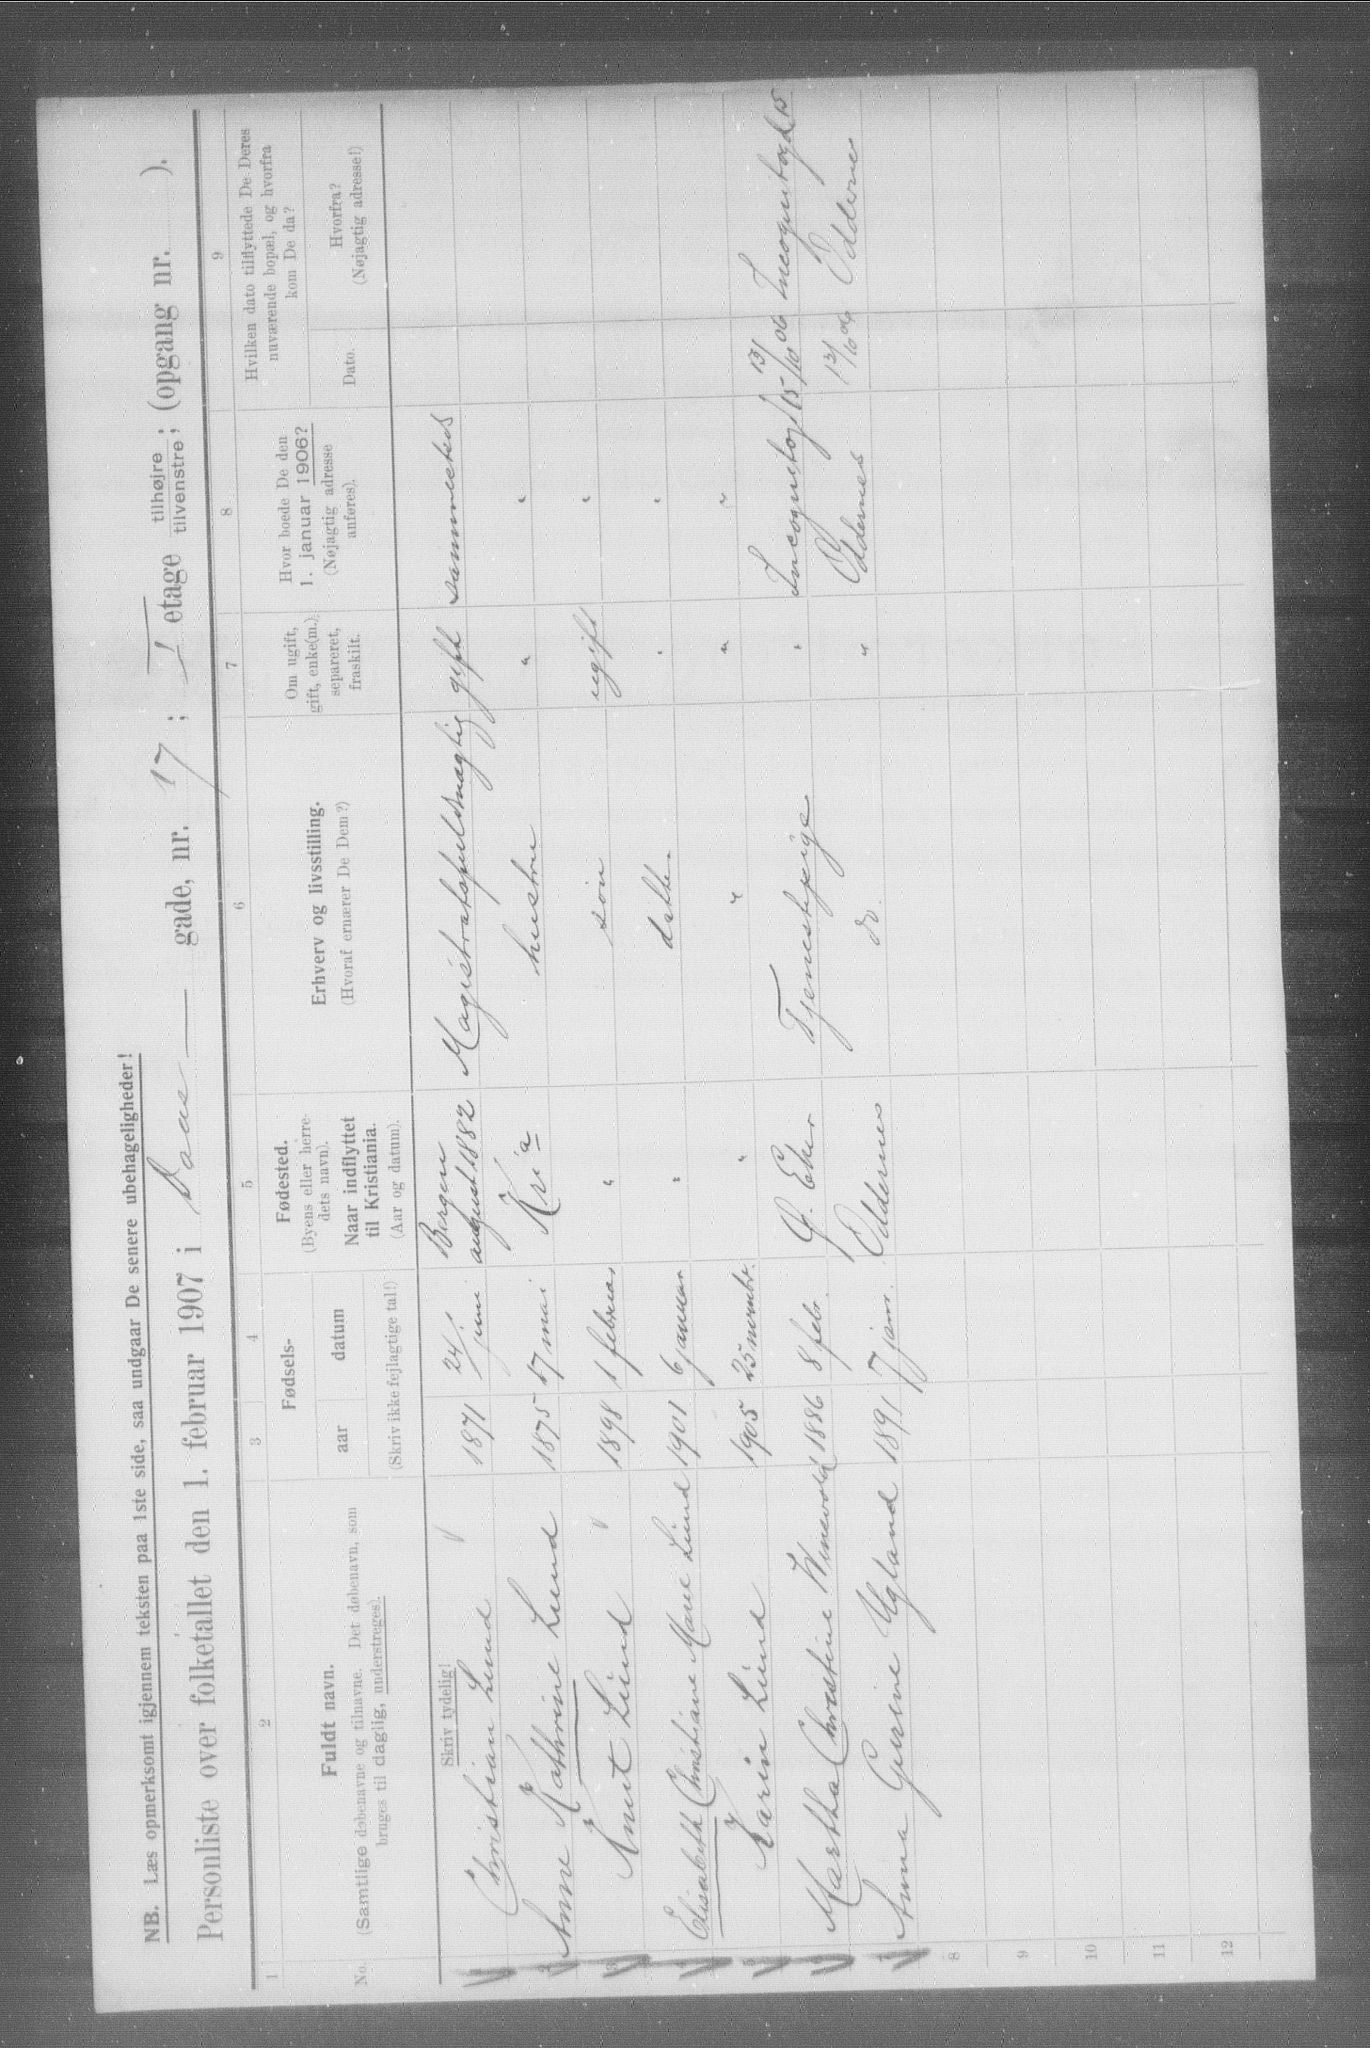 NB. Læs opmerksomt igjennem teksten paa 1ste side, saa undgaar De senere ubehageligheder!
Personliste over folketallet den 1. februar 1907 i Daas gade, nr. 17; I etage tilhøjre; tilvenstre; (opgang nr. ).
1 2 3 4 5 6 7 8 9
No.
Fuldt navn.
(Samtlige døbenavne og tilnavne. Det døbenavn, som bruges til daglig, understreges).
Fødsels-
aar datum
(Skriv ikke fejlagtige tal!)
Fødested.
(Byens eller herredets navn).
Naar indflyttet til Kristiania.
(Aar og datum).
Erhverv og livsstilling.
(Hvoraf ernærer De Dem?)
Om ugift, gift, enke(m.), separeret, fraskilt.
Hvor boede De den 1. januar 1906?
(Nøjagtig adresse anføres).
Hvilken dato tilflyttede De Deres nuværende bopæl, og hvorfra kom De da?
Dato.
Hvorfra?
(Nøjagtig adresse!)
Skriv tydelig!
1 Christian Lund 1871 24/ juni Bergen august 1882 Magistratsfuldmægtig gift sammesteds
2 Anne Kathrine Lund 1875 17 mai Kr.a hustru " "
3 Knut Lund 1898 1 februar " søn ugift "
4 Elisabeth Christiane Marie Lund 1901 6 januar " datter " "
5 Karin Lund 1905 25 novembr. " " " "
6 Martha Christine 1886 8 febr. Ø. Eker Tjenestepige " Incognitogd 15 13/10 06 Incognitogd 15
7 Anna Gurine Ugland 1891 7 jan. Oddernes do. " Oddernes 13/10 06 Oddernes
8
9
10
11
12